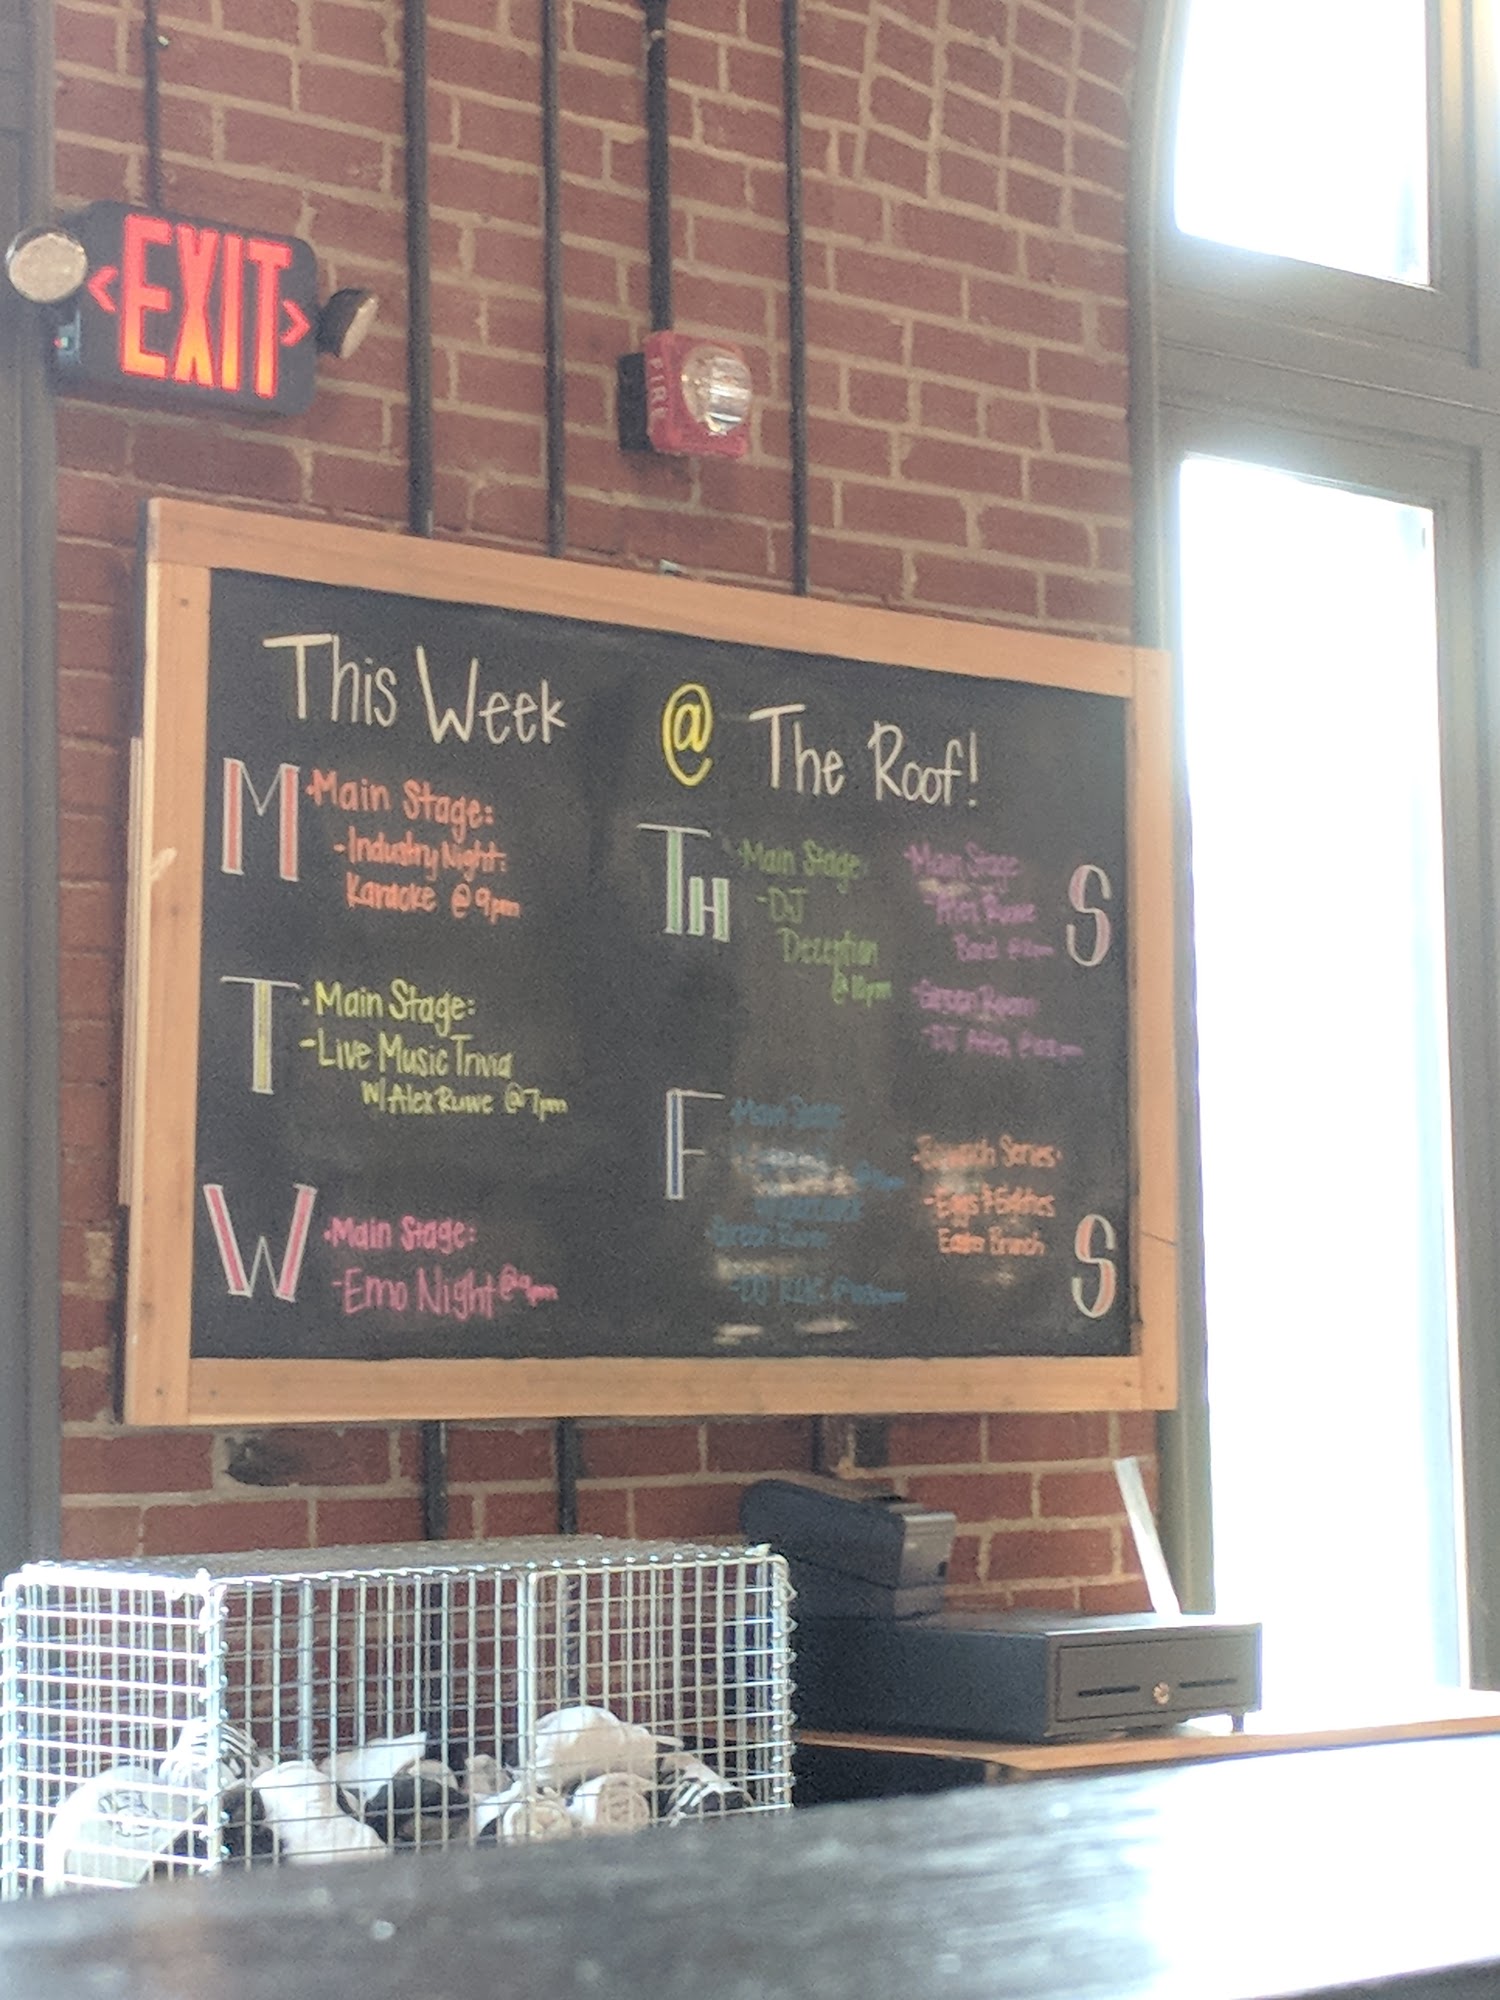 EXIT
FIRE
This Week @ The Roof!
M
·Main Stage:
-Industry Night:
Karaoke @ 9pm
T
·Main Stage:
-Live Music Trivia
w/ Alex Ruwe @ 7pm
W
·Main Stage:
-Emo Night @9pm
TH
·Main Stage:
-DJ
Deception
@10pm
F
Main Stage
-DJ
S
·Main Stage
-Alex Ruwe
Band
-DJ
S
·Brunch Series·
-Eggs & Eighties
Easter Brunch